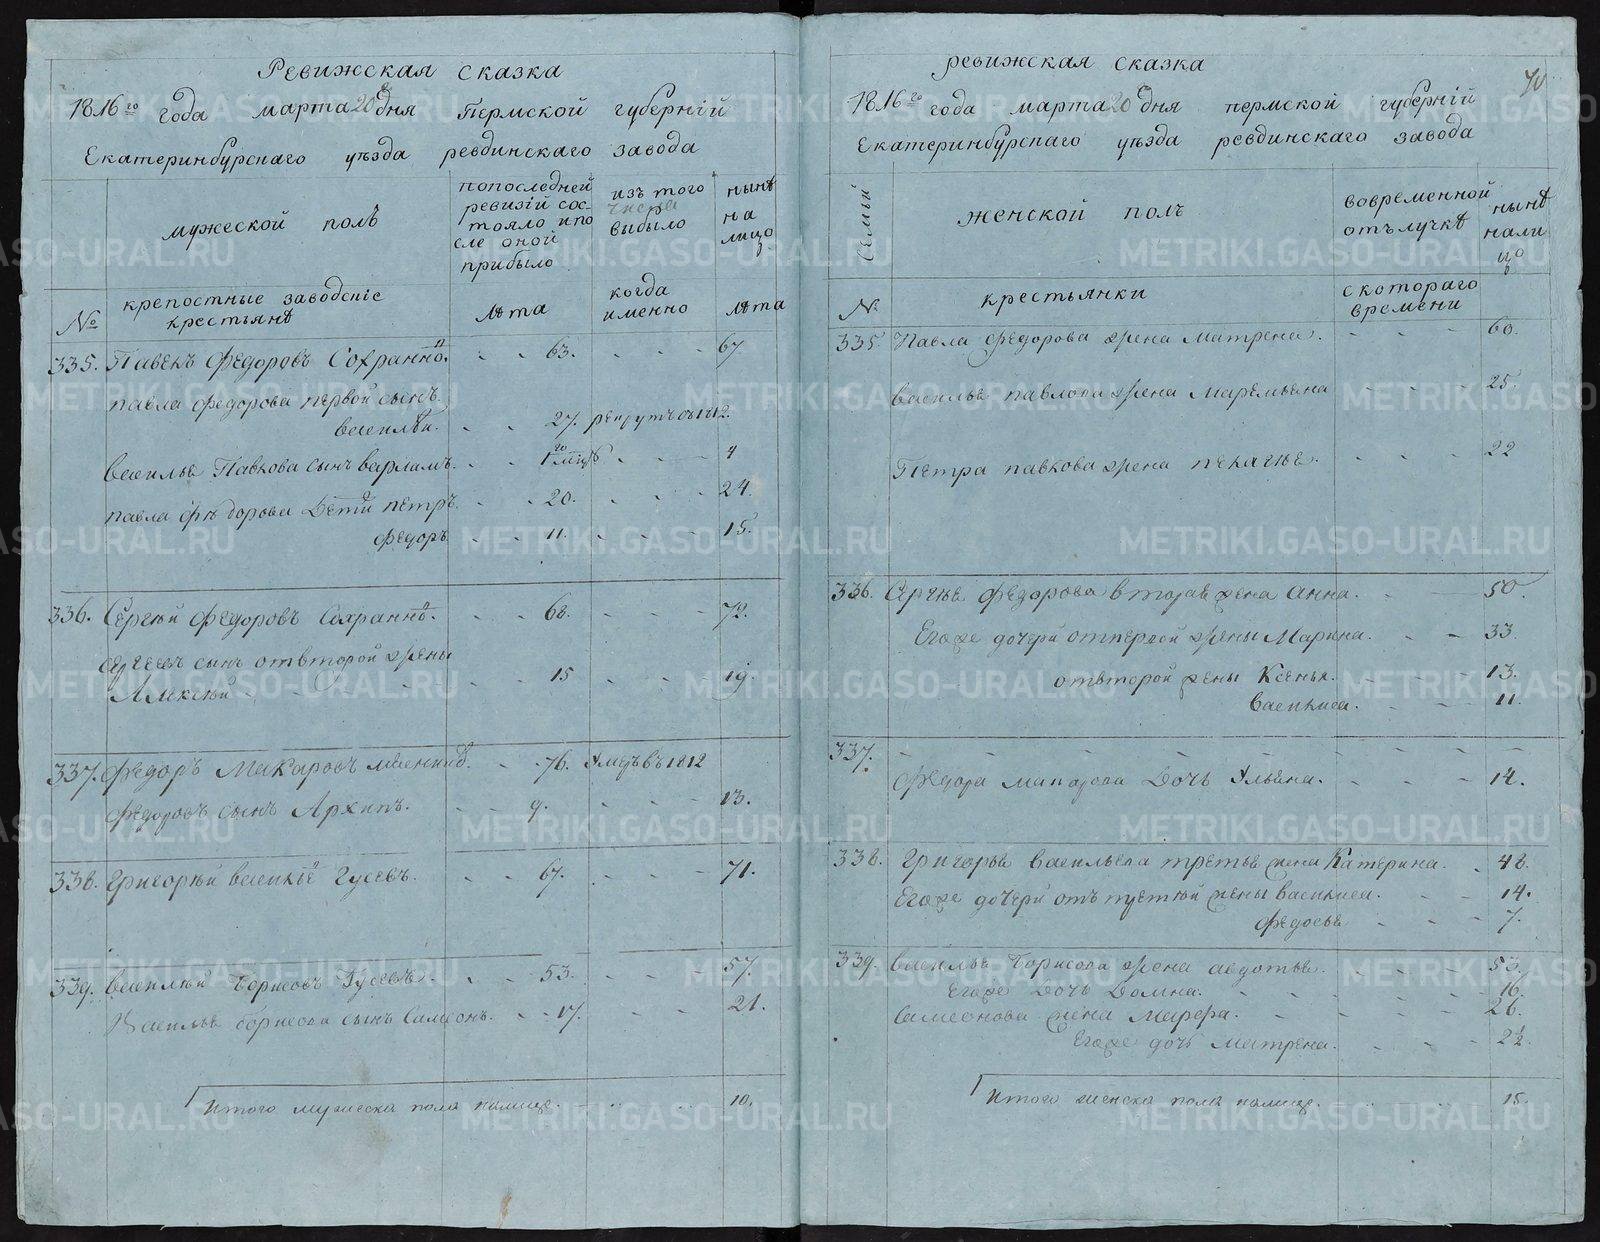 Ревижская сказка
1816го года марта 20 дня Пермской губерніи
Екатеринбурскаго уѣзда ревдинскаго завода
мужеской полъ
попоследней ревизіи сос-
тояло и по
сле оной
прибыло
изъ того
числа
выбыло
нынѣ
на
лицо
№
крепостные заводскіе
крестьянѣ
лѣта
когда
именно
лѣта
335. Павелъ Федоровъ Сохранно. 63. 67
павла федорова первой сынъ
василѣй. 27. рекрутъ въ 1812.
василья Павлова сынъ варламъ. 4
павла фѣдорова дети петръ. 20. 24.
федоръ. 11. 15.
336. Сергѣй Федоровъ Сахраннѣ. 68. 72.
сергеевъ сынъ отвторой жены
Алексѣй 15 19.
337. Федоръ Макаровъ 76. Умеръ въ 1812
Федоровъ сынъ Архипъ. 9. 13.
338. Григорѣй Гусевъ. 67. 71.
339. Василѣй Борисовъ Гусевъ. 53. 57.
Василья борисова сынъ Самсонъ. 17. 21.
Итого мужеска пола налице. 10.
70
ревижская сказка
1816го года марта 20 дня пермской губерніи
Екатеринбурскаго уѣзда ревдинскаго завода
Семьи
женской полъ
вовременной
отълучкѣ
нынѣ
нали
цо
№
крестьянки
скотораго
времени
335. Павла Федорова жена Матрена. 60.
василья павлова жена Маремьяна 25.
Петра павлова жена пелагѣя. 22
336. Сергѣя Федорова вторая жена Анна. 50.
Егоже дочери отпервой жены Марина. 33.
отвторой жены Ксенья. 13.
василиса. 11.
337.
Федора макарова дочь Ульяна. 14.
338. Григорья васильева третья жена Катерина. 48.
Егоже дочери отъ третѣй жены василиса. 14.
Федосья 7.
339. василья Борисова жена авдотья. 53.
Егоже дочь Домна. 16.
Самсонова жена Марфа. 26.
Егоже дочь матрена. 2½.
Итого женска пола налице. 15.
METRIKI.GASO-URAL.RU